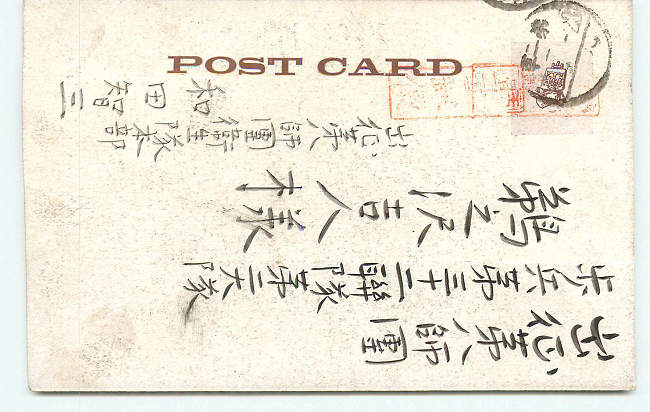 POST CARD
出征第八師團
歩兵第三十二聯隊第二大隊
鵜之沢吉人様
出征第八師團衛生隊本部
和田智三